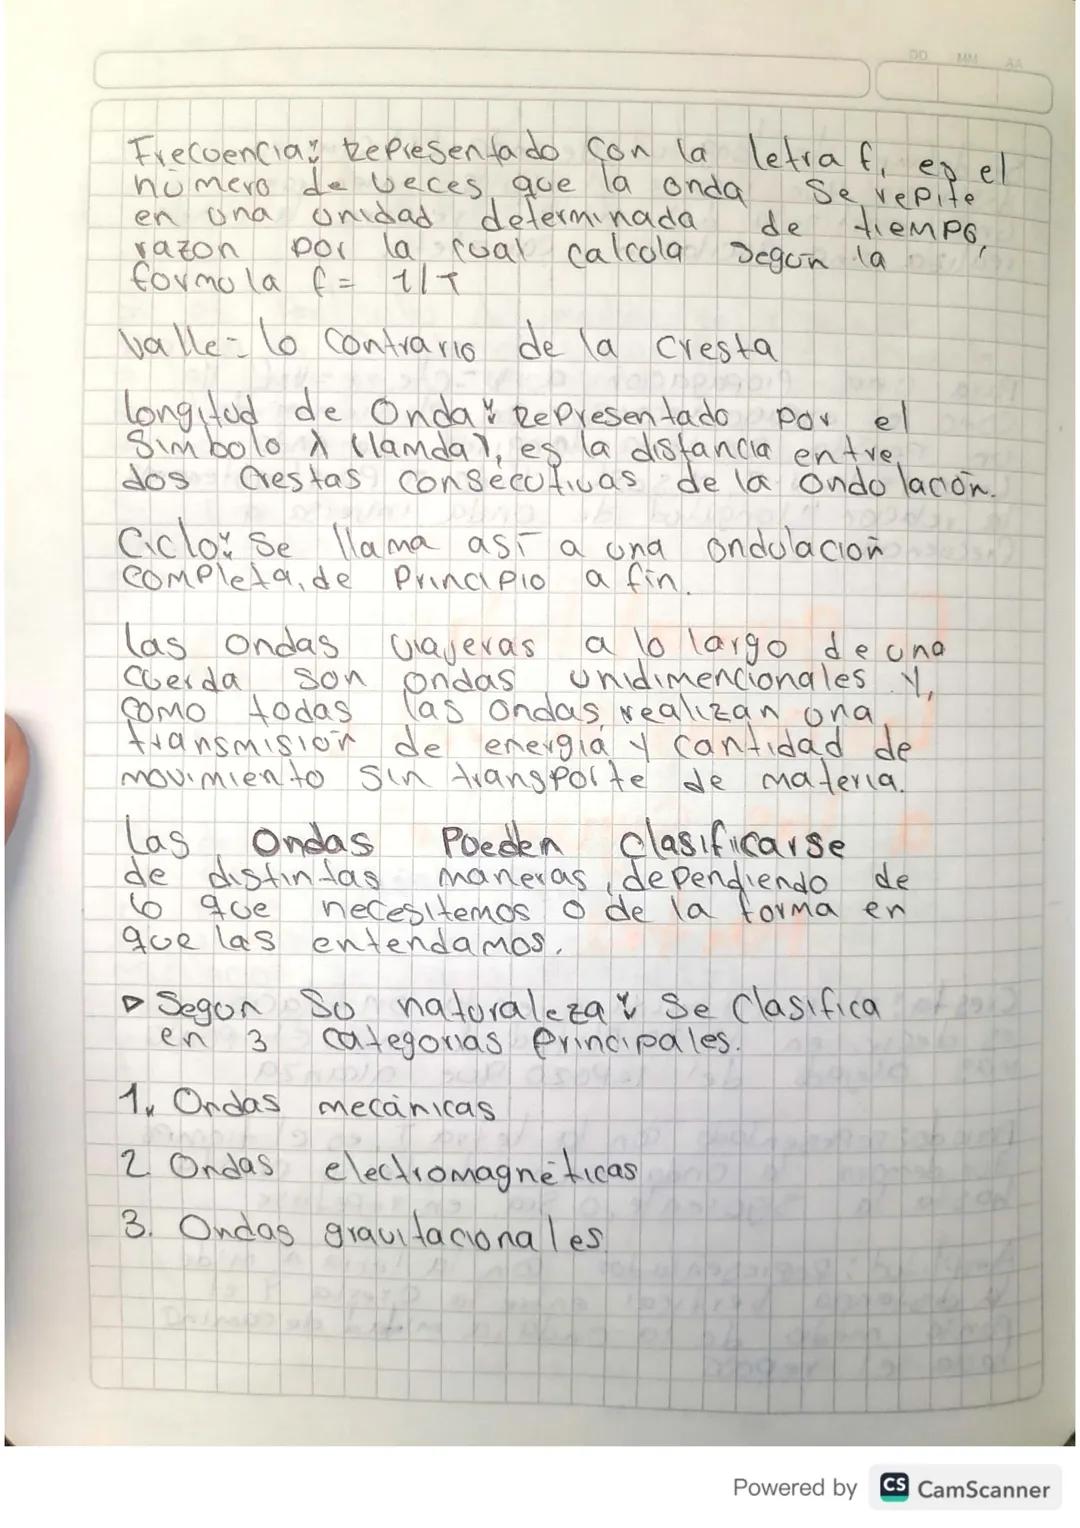 DD MM AA
Frecuencia: Representado con la letra f, es el
número de veces que la onda se repite
en una unidad determinada de tiempo,
razon por la cual calcula segun la
formula f = 1/T
Valle- lo contrario de la cresta
Longitud de Onda: Representado por el
Simbolo λ (lamda), es la distancia entre
dos Crestas consecutivas de la ondolación.
Ciclo: Se llama así a una ondulación
completa, de principio a fin.
Las Ondas viajeras a lo largo de una
cuerda son ondas unidimencionales y,
como todas las ondas, realizan una
transmisión de energia y cantidad de
movimiento sin transporte de materia.
Las Ondas Poeden clasificarse
de distintas maneras, dependiendo de
lo que necesitemos o de la forma en
que las entendamos.
▷ Segun su naturaleza: Se Clasifica
en 3 categorias principales.
1. Ondas mecánicas
2. Ondas electromagnéticas
3. Ondas gravitacionales.
Powered by CS CamScanner